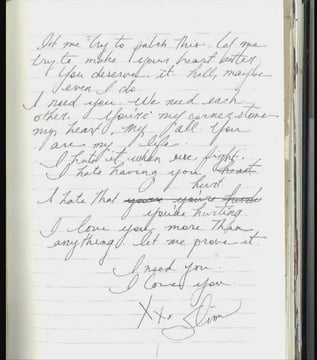 let me try to patch this. Let me
try to make your heart better.
You deserve it. hell, maybe
even I do.
I need you. We need each
other. You're my corner stone
my heart my all. You
are my life.
I hate it when we fight.
I hate having you heart
hurt.
I hate that you're hurt
you're hurting
I love you more than
anything let me prove it.
I need you.
I love you.
xxx